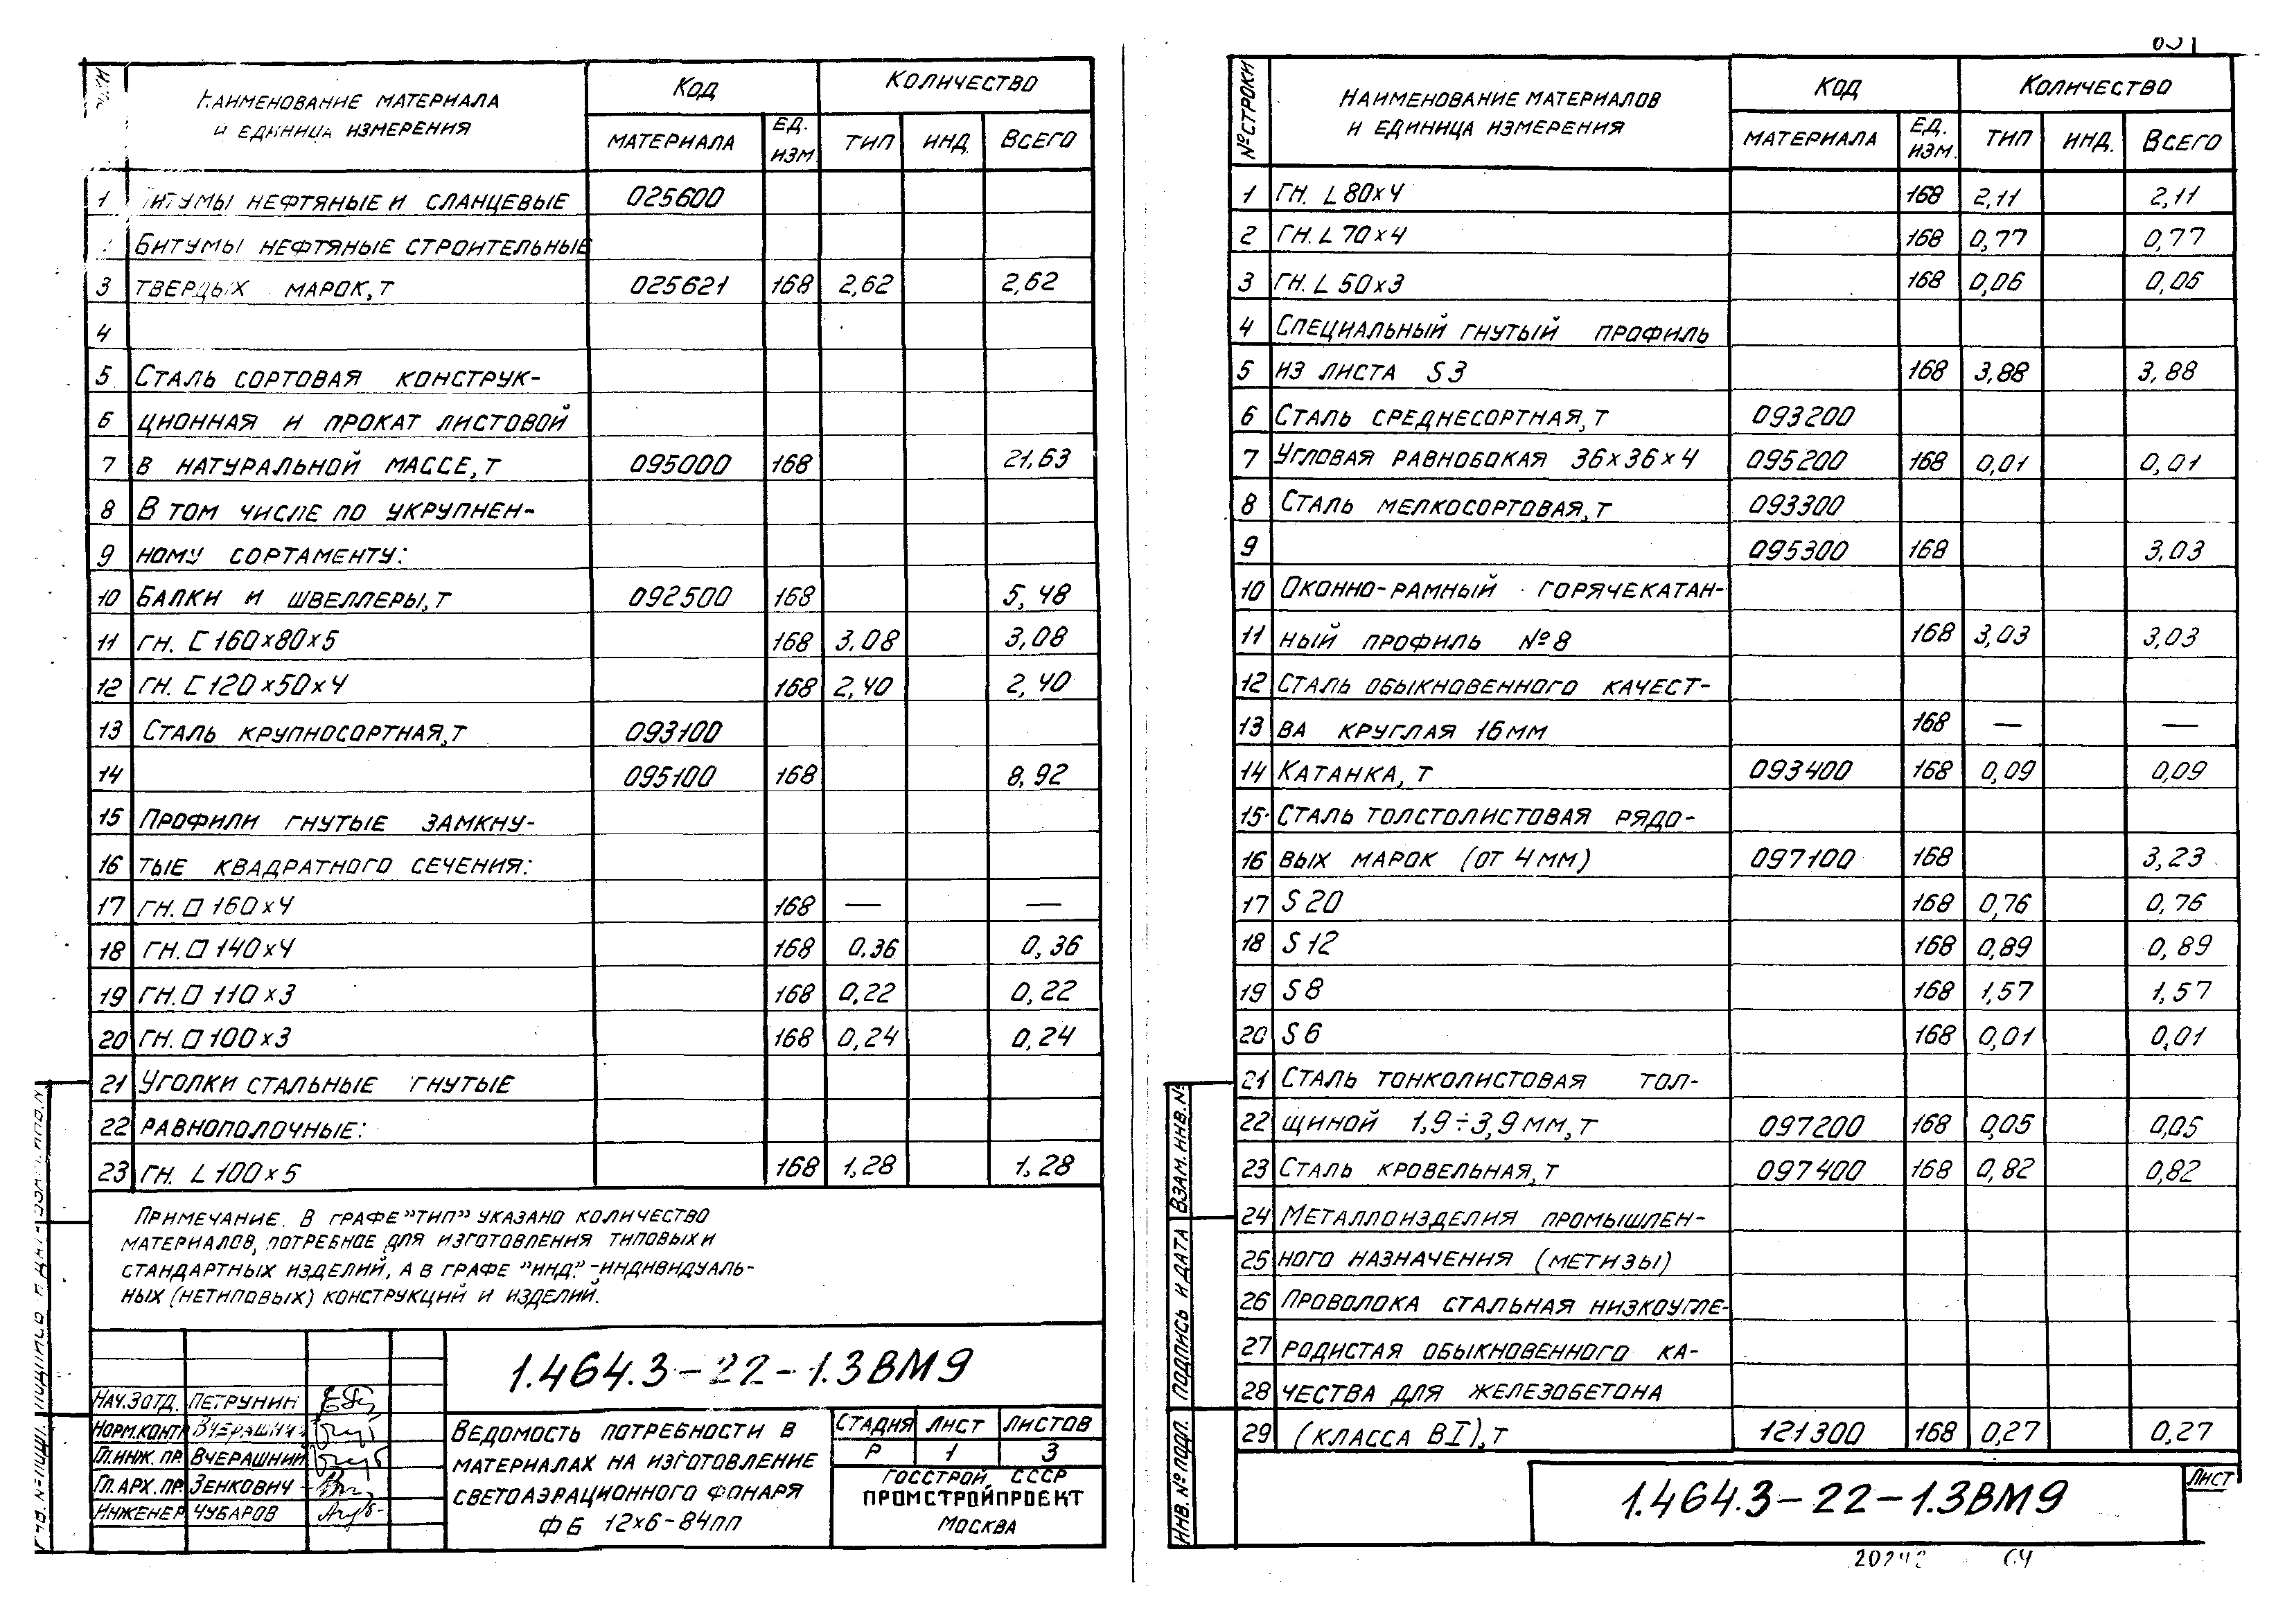 Наименование материала
и единица измерения
Код
Количество
материала
ед. изм.
тип
инд.
Всего
1 Битумы нефтяные и сланцевые 025600
Битумы нефтяные строительные
3 твердых марок, т 025621 168 2,62 2,62
4
5 Сталь сортовая конструк-
6 ционная и прокат листовой
7 в натуральной массе, т 095000 168 21,63
8 В том числе по укрупнен-
9 ному сортаменту:
10 Балки и швеллеры, т 092500 168 5,48
11 гн. [ 160х80х5 168 3,08 3,08
12 гн. [ 120х50х4 168 2,40 2,40
13 Сталь крупносортная, т 093100
14 095100 168 8,92
15 Профили гнутые замкну-
16 тые квадратного сечения:
17 гн. □ 160х4 168 — —
18 гн. □ 140х4 168 0,36 0,36
19 гн. □ 110х3 168 0,22 0,22
20 гн. □ 100х3 168 0,24 0,24
21 Уголки стальные гнутые
22 равнополочные:
23 гн. L 100х5 168 1,28 1,28
Примечание. В графе "тип" указано количество
материалов, потребное для изготовления типовых и
стандартных изделий, а в графе "инд." - индивидуаль-
ных (нетиповых) конструкций и изделий.
1.464.3-22-1.3ВМ9
Нач.зотд. Петрунин
Норм.контр Вчерашний
Гл.инж. пр. Вчерашний
Гл.арх. пр. Зенкович
Инженер Чубаров
Ведомость потребности в
материалах на изготовление
светоаэрационного фонаря
ФБ 12х6-84пп
Стадия Лист Листов
Р 1 3
Госстрой СССР
ПРОМСТРОЙПРОЕКТ
Москва
№ строки
Наименование материалов
и единица измерения
Код
Количество
материала
ед. изм.
тип
инд.
Всего
1 гн. L 80х4 168 2,11 2,11
2 гн. L 70х4 168 0,77 0,77
3 гн. L 50х3 168 0,06 0,06
4 Специальный гнутый профиль
5 из листа S3 168 3,88 3,88
6 Сталь среднесортная, т 093200
7 Угловая равнобокая 36х36х4 095200 168 0,01 0,01
8 Сталь мелкосортовая, т 093300
9 095300 168 3,03
10 Оконно-рамный горячекатан-
11 ный профиль №8 168 3,03 3,03
12 Сталь обыкновенного качест-
13 ва круглая 16мм 168 — —
14 Катанка, т 093400 168 0,09 0,09
15 Сталь толстолистовая рядо-
16 вых марок (от 4мм) 097100 168 3,23
17 S 20 168 0,76 0,76
18 S 12 168 0,89 0,89
19 S 8 168 1,57 1,57
20 S 6 168 0,01 0,01
21 Сталь тонколистовая тол-
22 щиной 1,9÷3,9 мм, т 097200 168 0,05 0,05
23 Сталь кровельная, т 097400 168 0,82 0,82
24 Металлоизделия промышлен-
25 ного назначения (метизы)
26 Проволока стальная низкоугле-
27 родистая обыкновенного ка-
28 чества для железобетона
29 (класса ВI), т 121300 168 0,27 0,27
Инв. № подл. Подпись и дата Взам. инв. №
1.464.3-22-1.3ВМ9
Лист
64